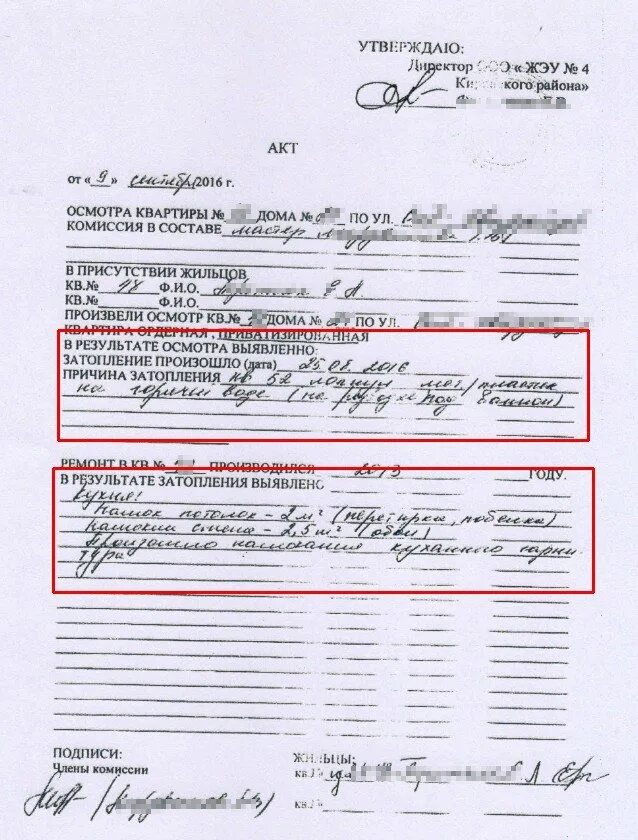 УТВЕРЖДАЮ:
Директор ООО « ЖЭУ № 4
Ки ского района»
АКТ
от « 9 » сентябр 2016 г.
ОСМОТРА КВАРТИРЫ № ДОМА № ПО УЛ.
КОМИССИЯ В СОСТАВЕ мастер
В ПРИСУТСТВИИ ЖИЛЬЦОВ
КВ.№ 48 Ф.И.О.
КВ.№ Ф.И.О.
ПРОИЗВЕЛИ ОСМОТР КВ.№ ДОМА № ПО УЛ.
КВАРТИРА ОРДЕРНАЯ , ПРИВАТИЗИРОВАННАЯ
В РЕЗУЛЬТАТЕ ОСМОТРА ВЫЯВЛЕННО:
ЗАТОПЛЕНИЕ ПРОИЗОШЛО (дата) 25.08.2016
ПРИЧИНА ЗАТОПЛЕНИЯ кв 52 лопнул мет/пластик
на горячей воде ( под ванной)
РЕМОНТ В КВ № ПРОИЗВОДИЛСЯ 2013 ГОДУ.
В РЕЗУЛЬТАТЕ ЗАТОПЛЕНИЯ ВЫЯВЛЕНО
Кухня:
Намок потолок - 2 м² (перетирка, побелка)
Намокли стена - 2,5 м² (обои)
Произошло намокания кухонного гарни
тура
ПОДПИСИ:
Члены комиссии
ЖИЛЬЦЫ:
кв.№
кв.№